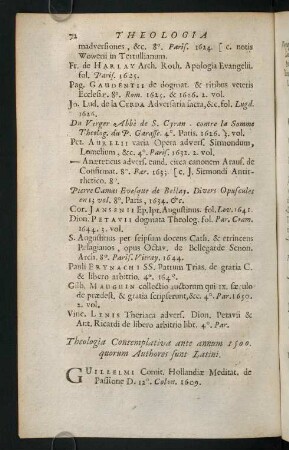 72 THEOLOGIA
madversiones, &c. 8°. Paris. 1624. [ c. notis
Woweni in Tertullianum.
Fr. de HARLAY Arch. Roth. Apologia Evangelii.
fol. Paris. 1625.
Pag. GAUDENTII de dogmat. & ritibus veteris
Ecclesiæ. 8°. Rom. 1625. & 1626. 2. vol.
Jo. Lud. de la CERDA Adversaria sacra, &c. fol. Lugd.
1626.
Du Verger Abbè de S. Cyran. contre la Somme
Theolog. du P. Garasse. 4°. Paris. 1626. 3. vol.
Pet. AURELII varia Opera advers. Sirmondum,
Lomelium, &c. 4°. Paris. 1632. 2. vol.
— Anæreticus advers. eund. circa canonem Araus. de
Confirmat. 8°. Par. 1633. [ c. J. Sirmondi Antir-
rhetico. 8°.
Pierre Camus Evesque de Bellay. Divers Opuscules
en 15 vol. 8°. Paris, 1634. &c.
Cor. JANSENII Ep. Ipr. Augustinus. fol. Lov. 1641.
Dion. PETAVII dogmata Theolog. fol. Par. Cram.
1644. 3. vol.
S. Augustinus per seipsum docens Cath. & vincens
Pelagianos, opus Octav. de Bellegarde Senon.
Arch. 8°. Paris. Vitray. 1644.
Pauli ERYNACHI SS. Patrum Trias. de gratia C.
& libero arbitrio. 4°. 164°.
Gilb. MAUGUIN collectio auctorum qui IX. sæculo
de prædest. & gratia scripserunt, &c. 4°. Par. 1650.
2. vol.
Vinc. LENIS Theriaca advers. Dion. Petavii &
Ant. Ricardi de libero arbitrio libr. 4°. Par.
Theologia Contemplativa ante annum 1500.
quorum Authores sunt Latini.
GUILELMI Comit. Hollandiæ Meditat. de
Passione D. 12°. Colon. 1609.